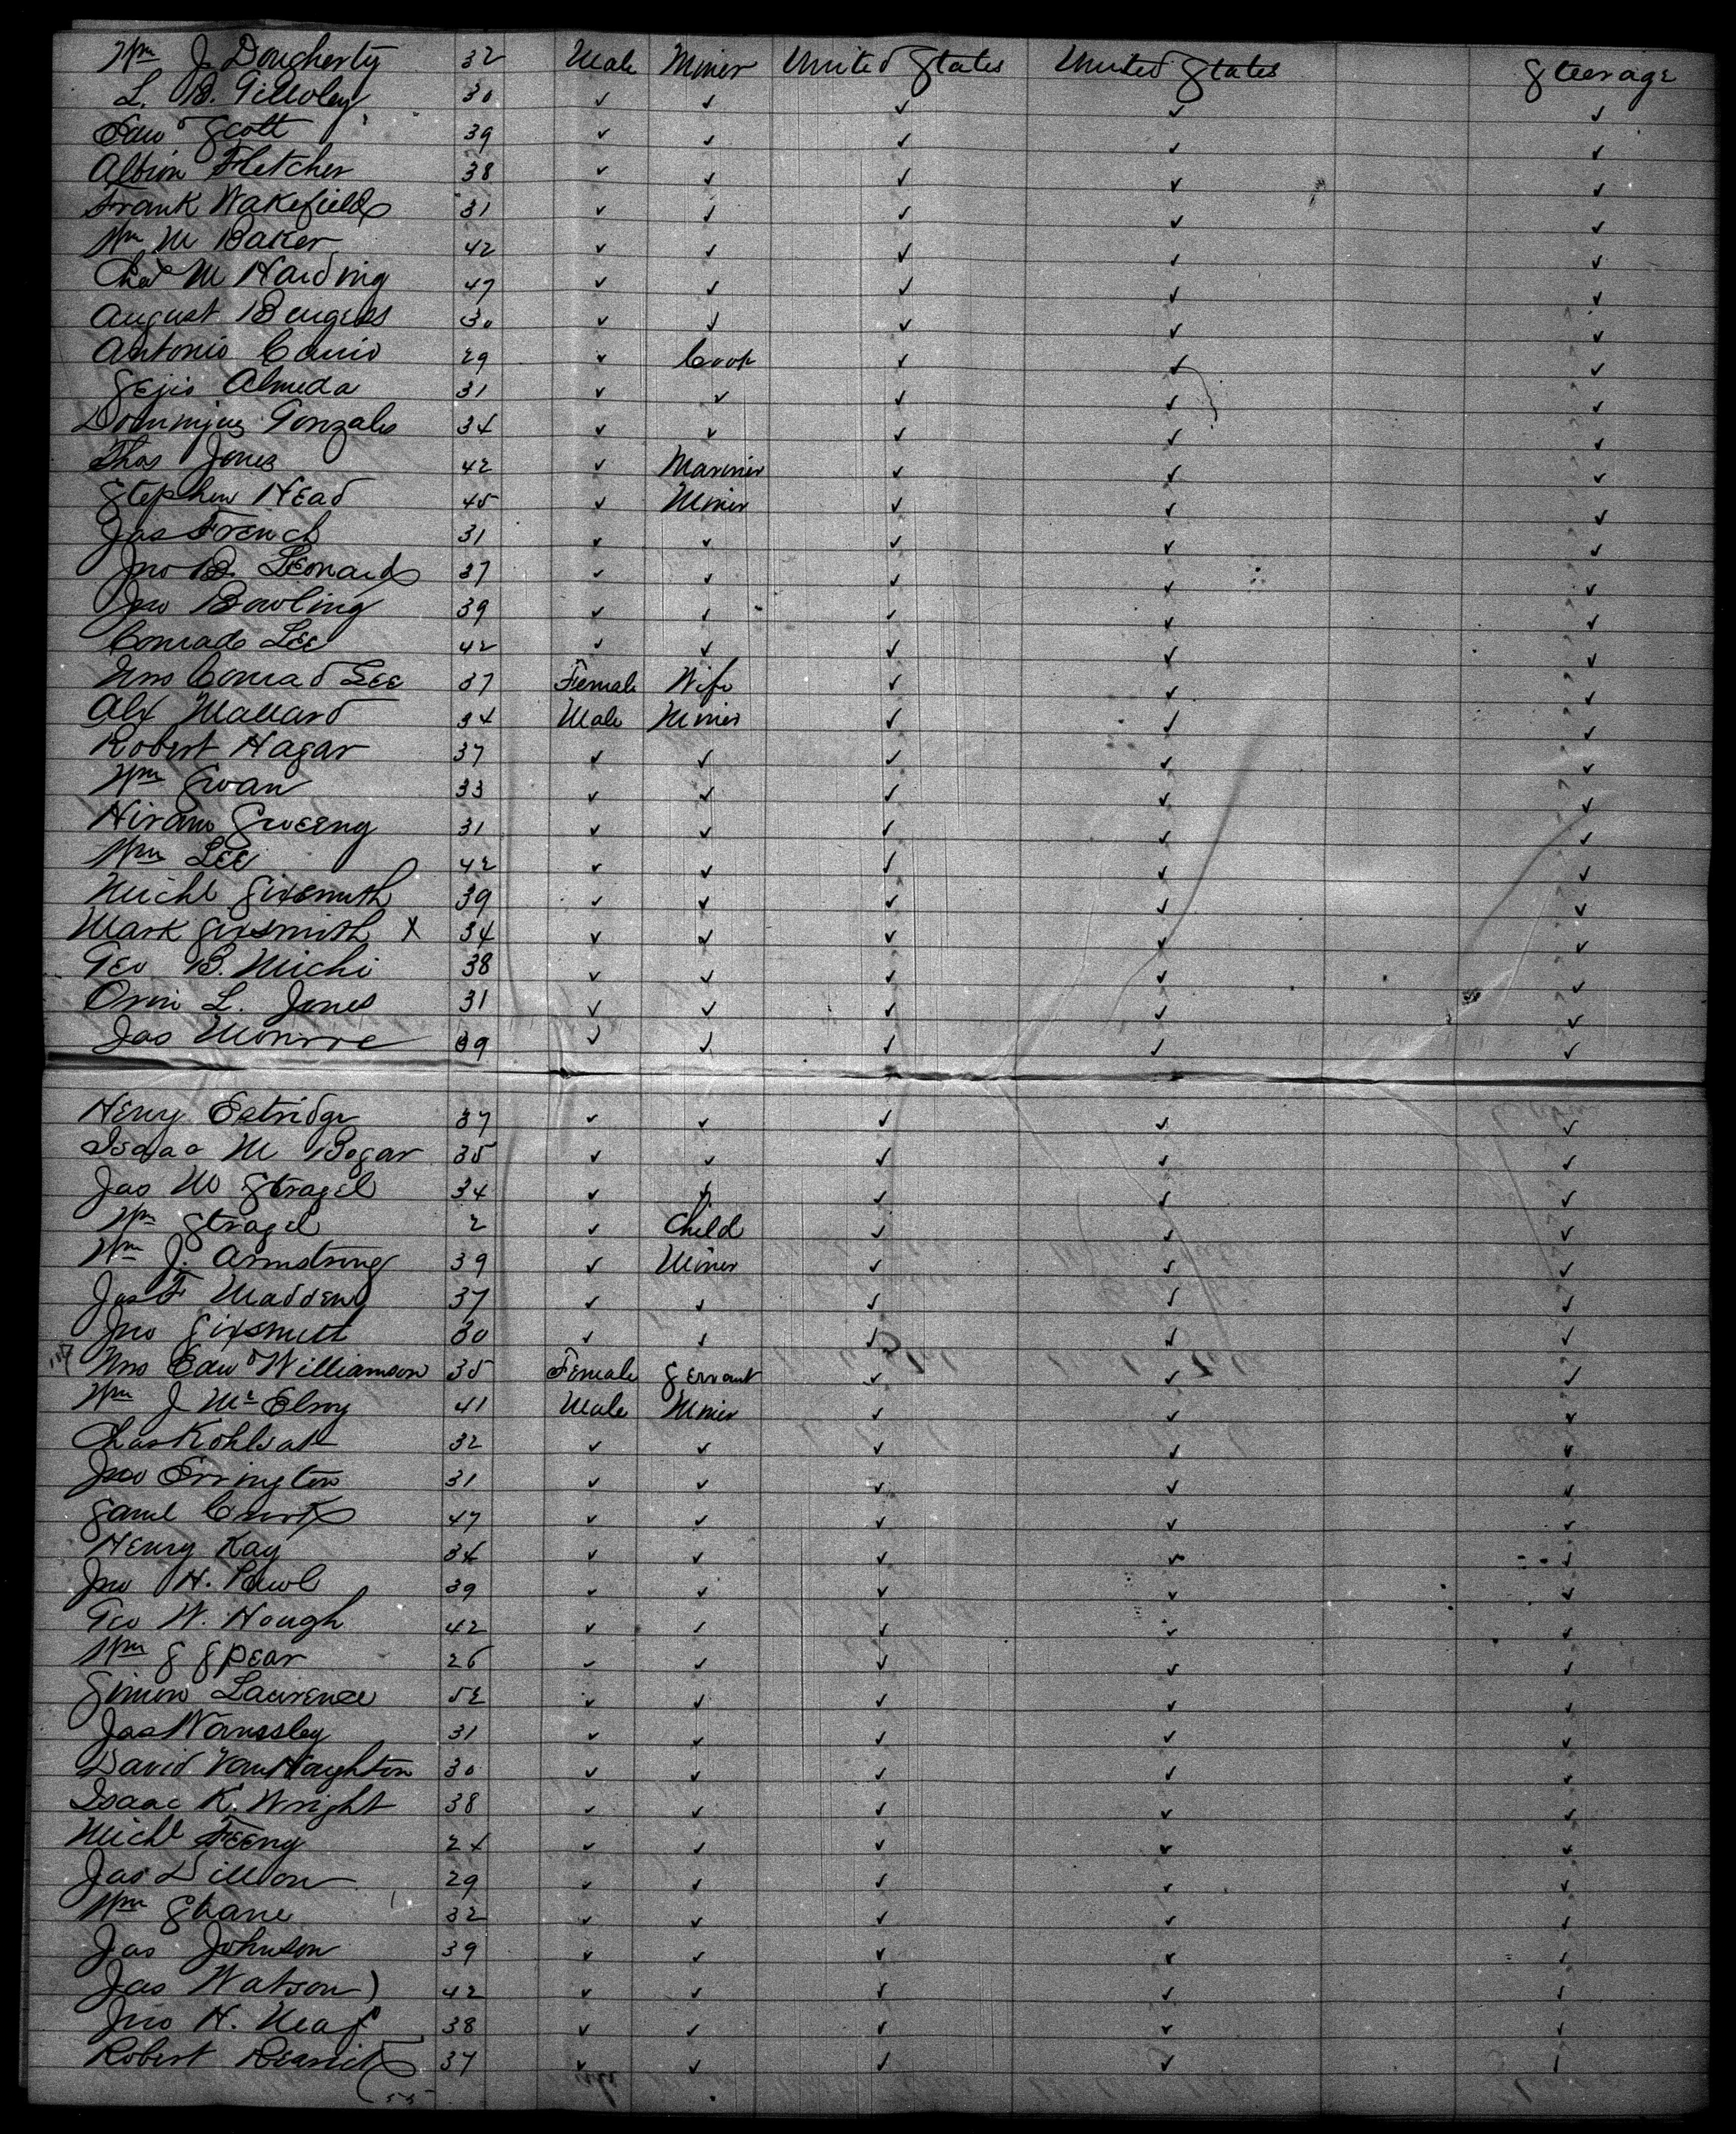 Wm J Dougherty 32 Male Miner United States United States Steerage
L. B. Gilloley 30 ✓ ✓ ✓ ✓ ✓
Edwd Scott 39 ✓ ✓ ✓ ✓ ✓
Albion Fletcher 38 ✓ ✓ ✓ ✓ ✓
Frank Wakefield 31 ✓ ✓ ✓ ✓ ✓
Wm M Baker 42 ✓ ✓ ✓ ✓ ✓
Chas M Harding 47 ✓ ✓ ✓ ✓ ✓
August 30 ✓ ✓ ✓ ✓ ✓
Antonio 29 ✓ Cook ✓ ✓ ✓
Almeda 31 ✓ ✓ ✓ ✓ ✓
Gonzales 34 ✓ ✓ ✓ ✓ ✓
Thos Jones 42 ✓ Mariner ✓ ✓ ✓
Stephen Head 45 ✓ Miner ✓ ✓ ✓
Jas French 31 ✓ ✓ ✓ ✓ ✓
Jno B. Leonard 37 ✓ ✓ ✓ ✓ ✓
Jno Bowling 39 ✓ ✓ ✓ ✓ ✓
Conrad Lee 42 ✓ ✓ ✓ ✓ ✓
Mrs Conrad Lee 37 Female Wife ✓ ✓ ✓
Alx Mallard 34 Male Miner ✓ ✓ ✓
Robert Hagar 37 ✓ ✓ ✓ ✓ ✓
Wm Swan 33 ✓ ✓ ✓ ✓ ✓
Hiram Sweeny 31 ✓ ✓ ✓ ✓ ✓
Wm Lee 42 ✓ ✓ ✓ ✓ ✓
Michl Sixsmith 39 ✓ ✓ ✓ ✓ ✓
Mark Sixsmith X 34 ✓ ✓ ✓ ✓ ✓
Geo B. Michi 38 ✓ ✓ ✓ ✓ ✓
Orin L. Jones 31 ✓ ✓ ✓ ✓ ✓
Jas Monroe 39 ✓ ✓ ✓ ✓ ✓
Henry Estridge 37 ✓ ✓ ✓ ✓ ✓
Isaac M Bogar 35 ✓ ✓ ✓ ✓ ✓
Jas M Stragel 34 ✓ ✓ ✓ ✓ ✓
Wm Stragel 2 ✓ Child ✓ ✓ ✓
Wm J. Armstrong 39 ✓ Miner ✓ ✓ ✓
Jas F Madden 37 ✓ ✓ ✓ ✓ ✓
Jno Sixsmith 30 ✓ ✓ ✓ ✓ ✓
Mrs Edwd Williamson 35 Female Servant ✓ ✓ ✓
Wm J McElroy 41 Male Miner ✓ ✓ ✓
Chas Kohlsat 32 ✓ ✓ ✓ ✓ ✓
Jno Errington 31 ✓ ✓ ✓ ✓ ✓
Saml 47 ✓ ✓ ✓ ✓ ✓
Henry Kay 34 ✓ ✓ ✓ ✓ ✓
Jno H. 39 ✓ ✓ ✓ ✓ ✓
Geo W. Hough 42 ✓ ✓ ✓ ✓ ✓
Wm S Spear 26 ✓ ✓ ✓ ✓ ✓
Simon Lawrence 52 ✓ ✓ ✓ ✓ ✓
Jas Wamssley 31 ✓ ✓ ✓ ✓ ✓
David VanNaughton 30 ✓ ✓ ✓ ✓ ✓
Isaac K. Wright 38 ✓ ✓ ✓ ✓ ✓
Michl Feeny 24 ✓ ✓ ✓ ✓ ✓
Jas Dillon 29 ✓ ✓ ✓ ✓ ✓
Wm Shane 32 ✓ ✓ ✓ ✓ ✓
Jas Johnson 39 ✓ ✓ ✓ ✓ ✓
Jas Watson 42 ✓ ✓ ✓ ✓ ✓
Jno H. Neaf 38 ✓ ✓ ✓ ✓ ✓
Robert 37 ✓ ✓ ✓ ✓ ✓
55